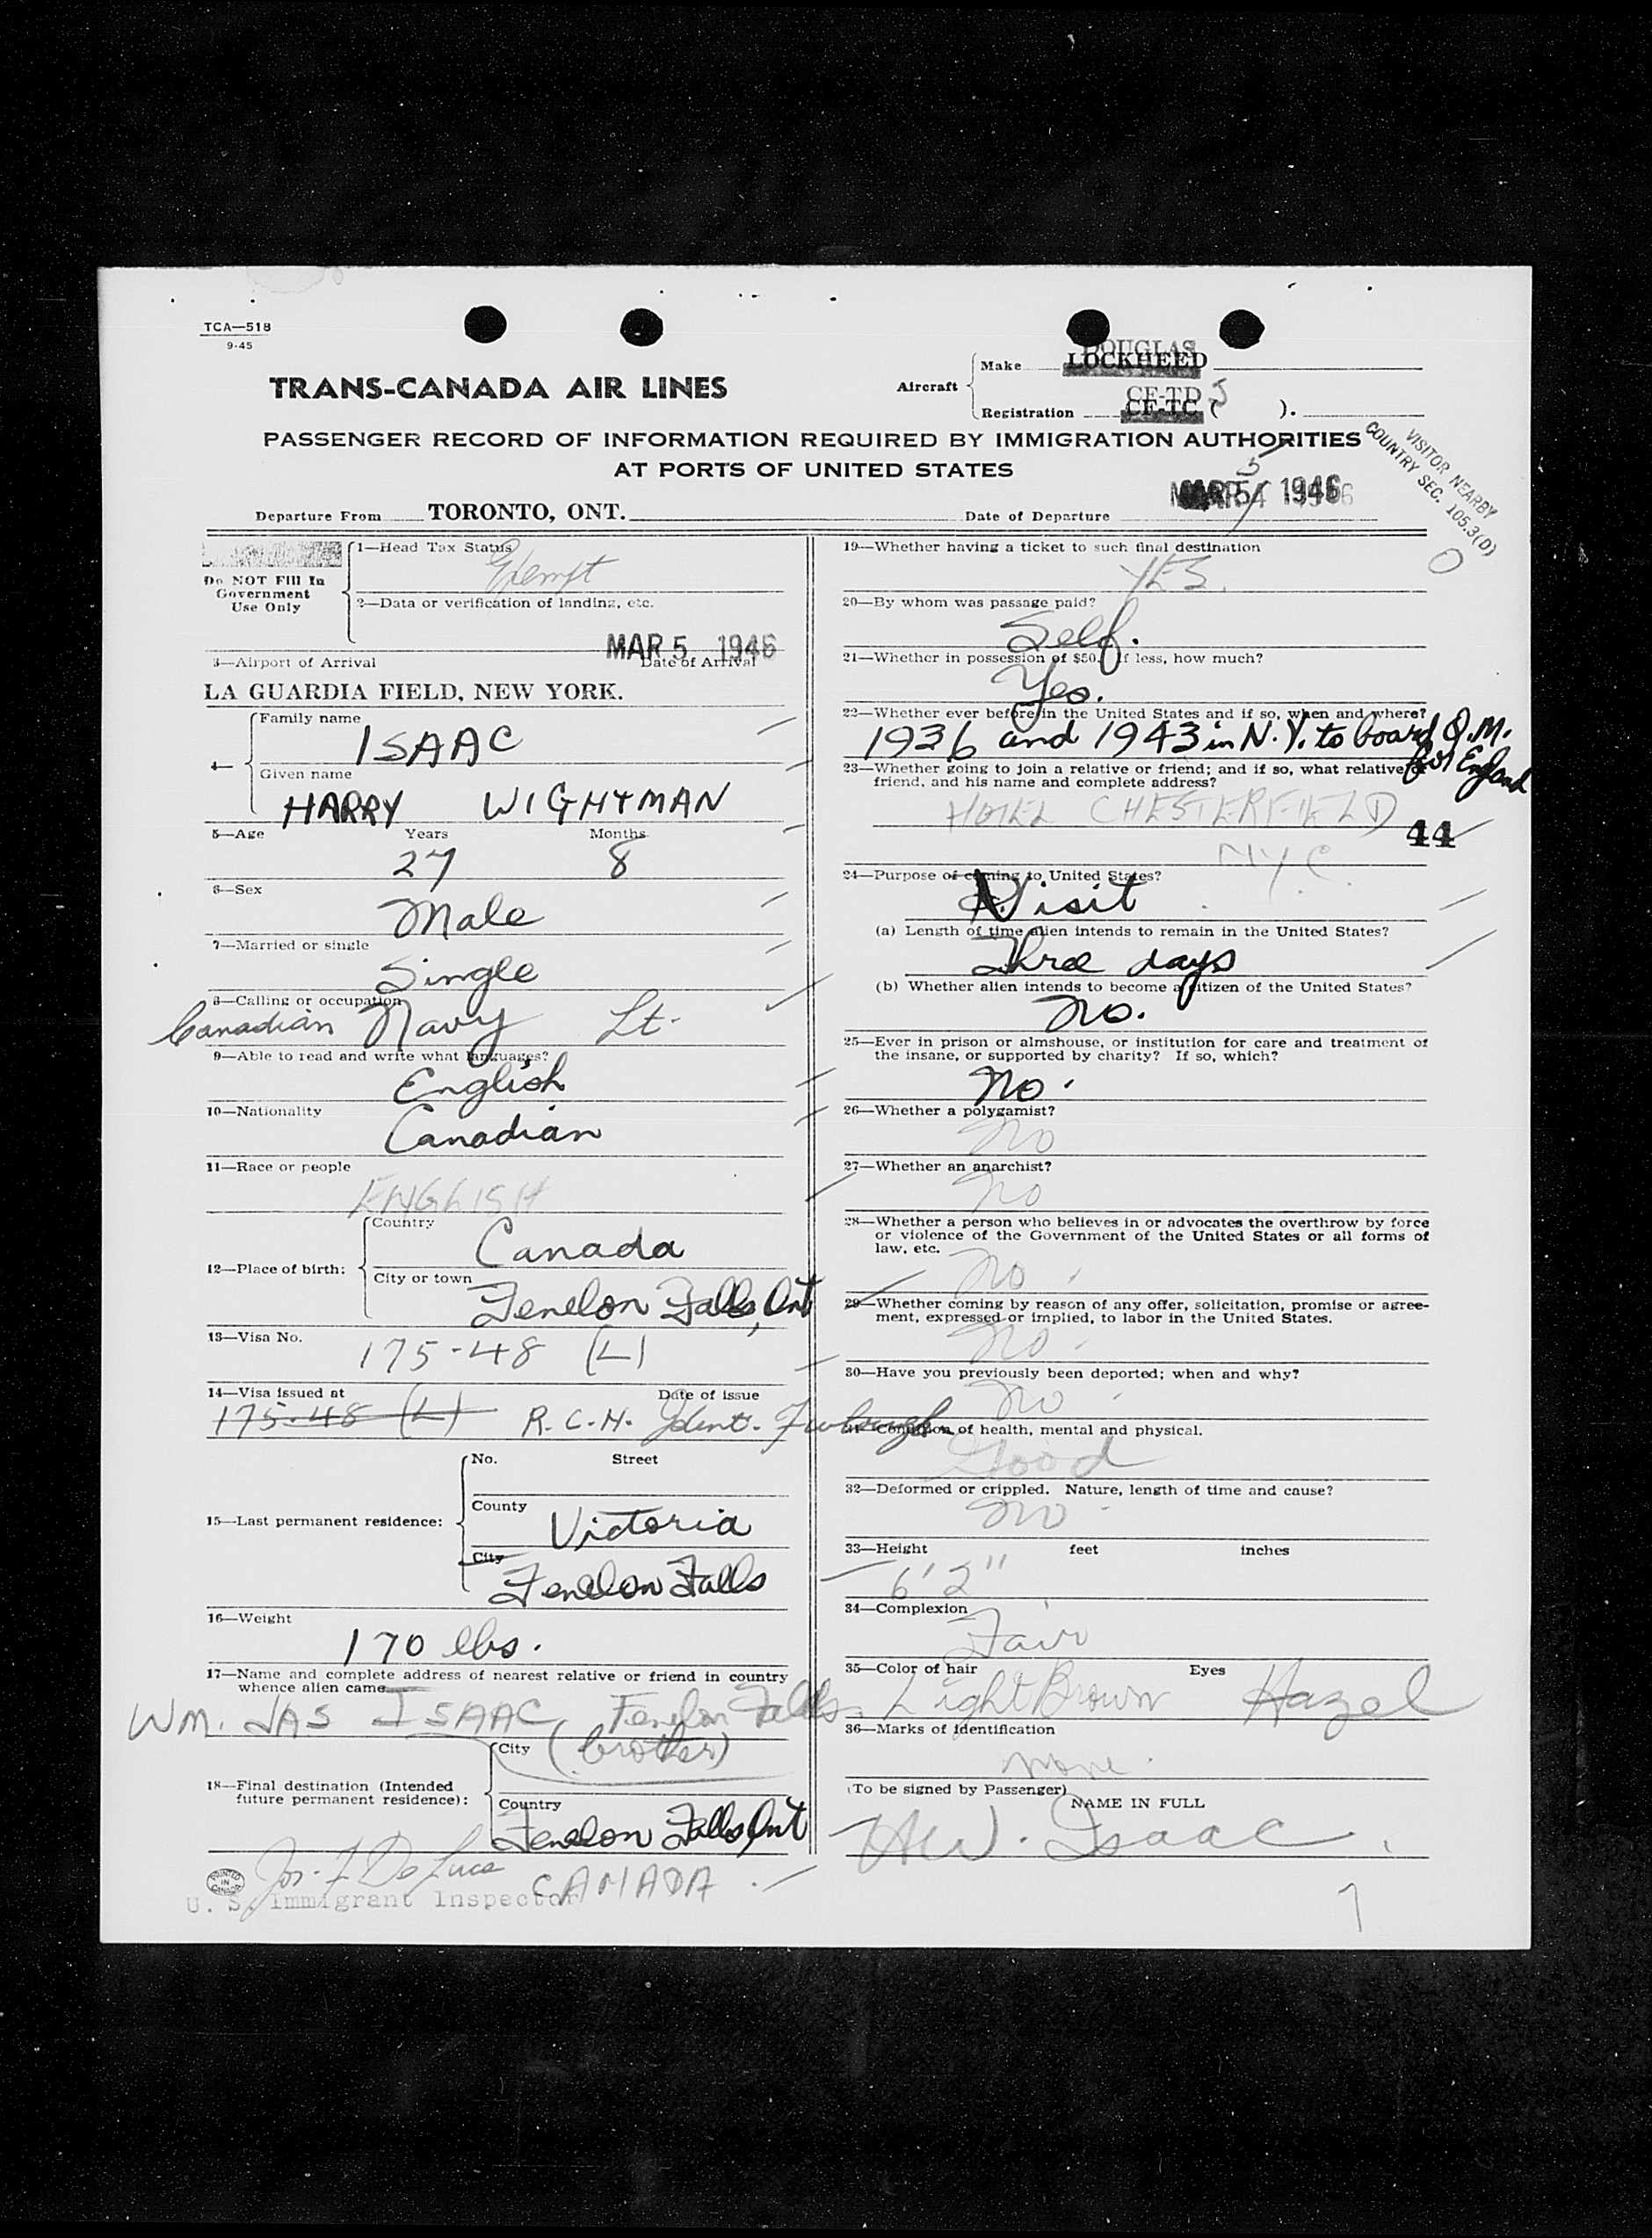 TCA—518
9-45
TRANS-CANADA AIR LINES
Aircraft
Make DOUGLAS
LOCKHEED
Registration CF-TD J
CF-TC ( ).
PASSENGER RECORD OF INFORMATION REQUIRED BY IMMIGRATION AUTHORITIES
AT PORTS OF UNITED STATES
VISITOR NEARBY
COUNTRY SEC. 105.3(0)
Departure From TORONTO, ONT.
Date of Departure MAR 5 1946
5
Do NOT Fill In
Government
Use Only
1—Head Tax Status
Exempt
2—Data or verification of landing, etc.
MAR 5 1946
3—Airport of Arrival Date of Arrival
LA GUARDIA FIELD, NEW YORK.
4—
Family name
ISAAC
Given name
HARRY WIGHTMAN
5—Age Years Months
27 8
6—Sex
Male
7—Married or single
Single
8—Calling or occupation
Canadian Navy Lt.
9—Able to read and write what languages?
English
10—Nationality
Canadian
11—Race or people
ENGLISH
12—Place of birth:
Country
Canada
City or town
Fenelon Falls, Ont
13—Visa No.
175-48 (L)
14—Visa issued at Date of issue
175-48 (L) R.C.N. Ident.
15—Last permanent residence:
No. Street
County
Victoria
City
Fenelon Falls
16—Weight
170 lbs.
17—Name and complete address of nearest relative or friend in country
whence alien came
WM. JAS ISAAC Fenelon Falls.
(brother)
18—Final destination (Intended
future permanent residence):
City
Country
Fenelon Falls Ont
CANADA
PRINTED
IN
CANADA
Jos. F De Luca
U. S. Immigrant Inspector
19—Whether having a ticket to such final destination
YES.
20—By whom was passage paid?
Self.
21—Whether in possession of $50. If less, how much?
Yes.
22—Whether ever before in the United States and if so, when and where?
1936 and 1943 in N.Y. to board Q.M.
for England
23—Whether going to join a relative or friend; and if so, what relative or
friend, and his name and complete address?
HOTEL CHESTERFIELD
44
N.Y.C.
24—Purpose of coming to United States?
Visit
(a) Length of time alien intends to remain in the United States?
Three days
(b) Whether alien intends to become a citizen of the United States?
No.
25—Ever in prison or almshouse, or institution for care and treatment of
the insane, or supported by charity? If so, which?
No.
26—Whether a polygamist?
No
27—Whether an anarchist?
No
28—Whether a person who believes in or advocates the overthrow by force
or violence of the Government of the United States or all forms of
law, etc.
No
29—Whether coming by reason of any offer, solicitation, promise or agree-
ment, expressed or implied, to labor in the United States.
No
30—Have you previously been deported; when and why?
No
31—Condition of health, mental and physical.
Good
32—Deformed or crippled. Nature, length of time and cause?
No
33—Height feet inches
6'2"
34—Complexion
Fair
35—Color of hair Eyes
Light Brown Hazel
36—Marks of identification
None.
(To be signed by Passenger)
NAME IN FULL
H.W. Isaac
7